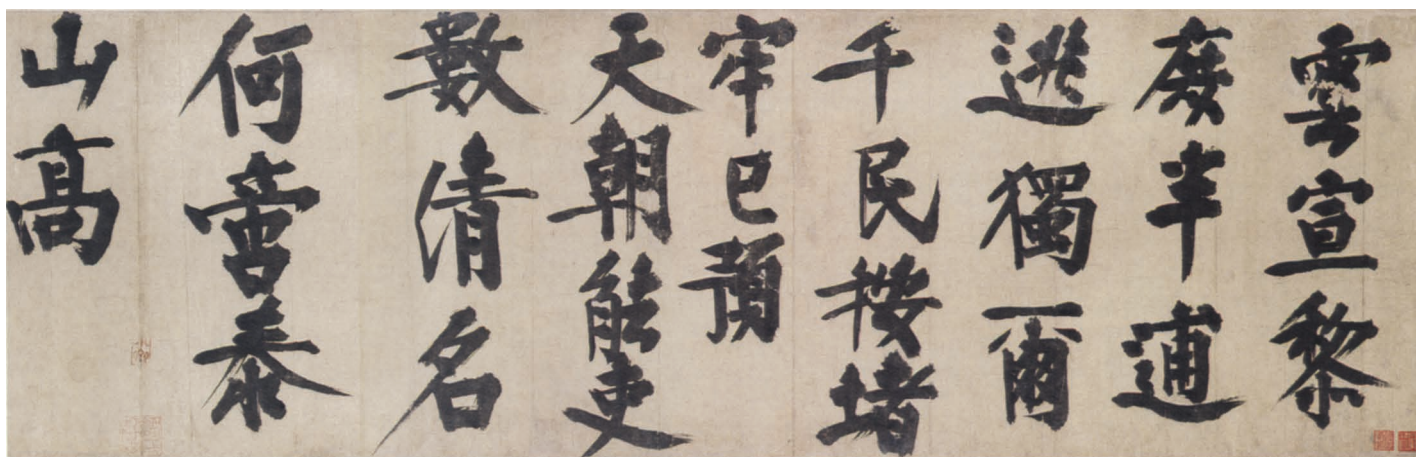 雲宣黎
庶半逋
逃獨爾
千民按堵
牢已預
天朝能吏
數清名
何啻泰
山高